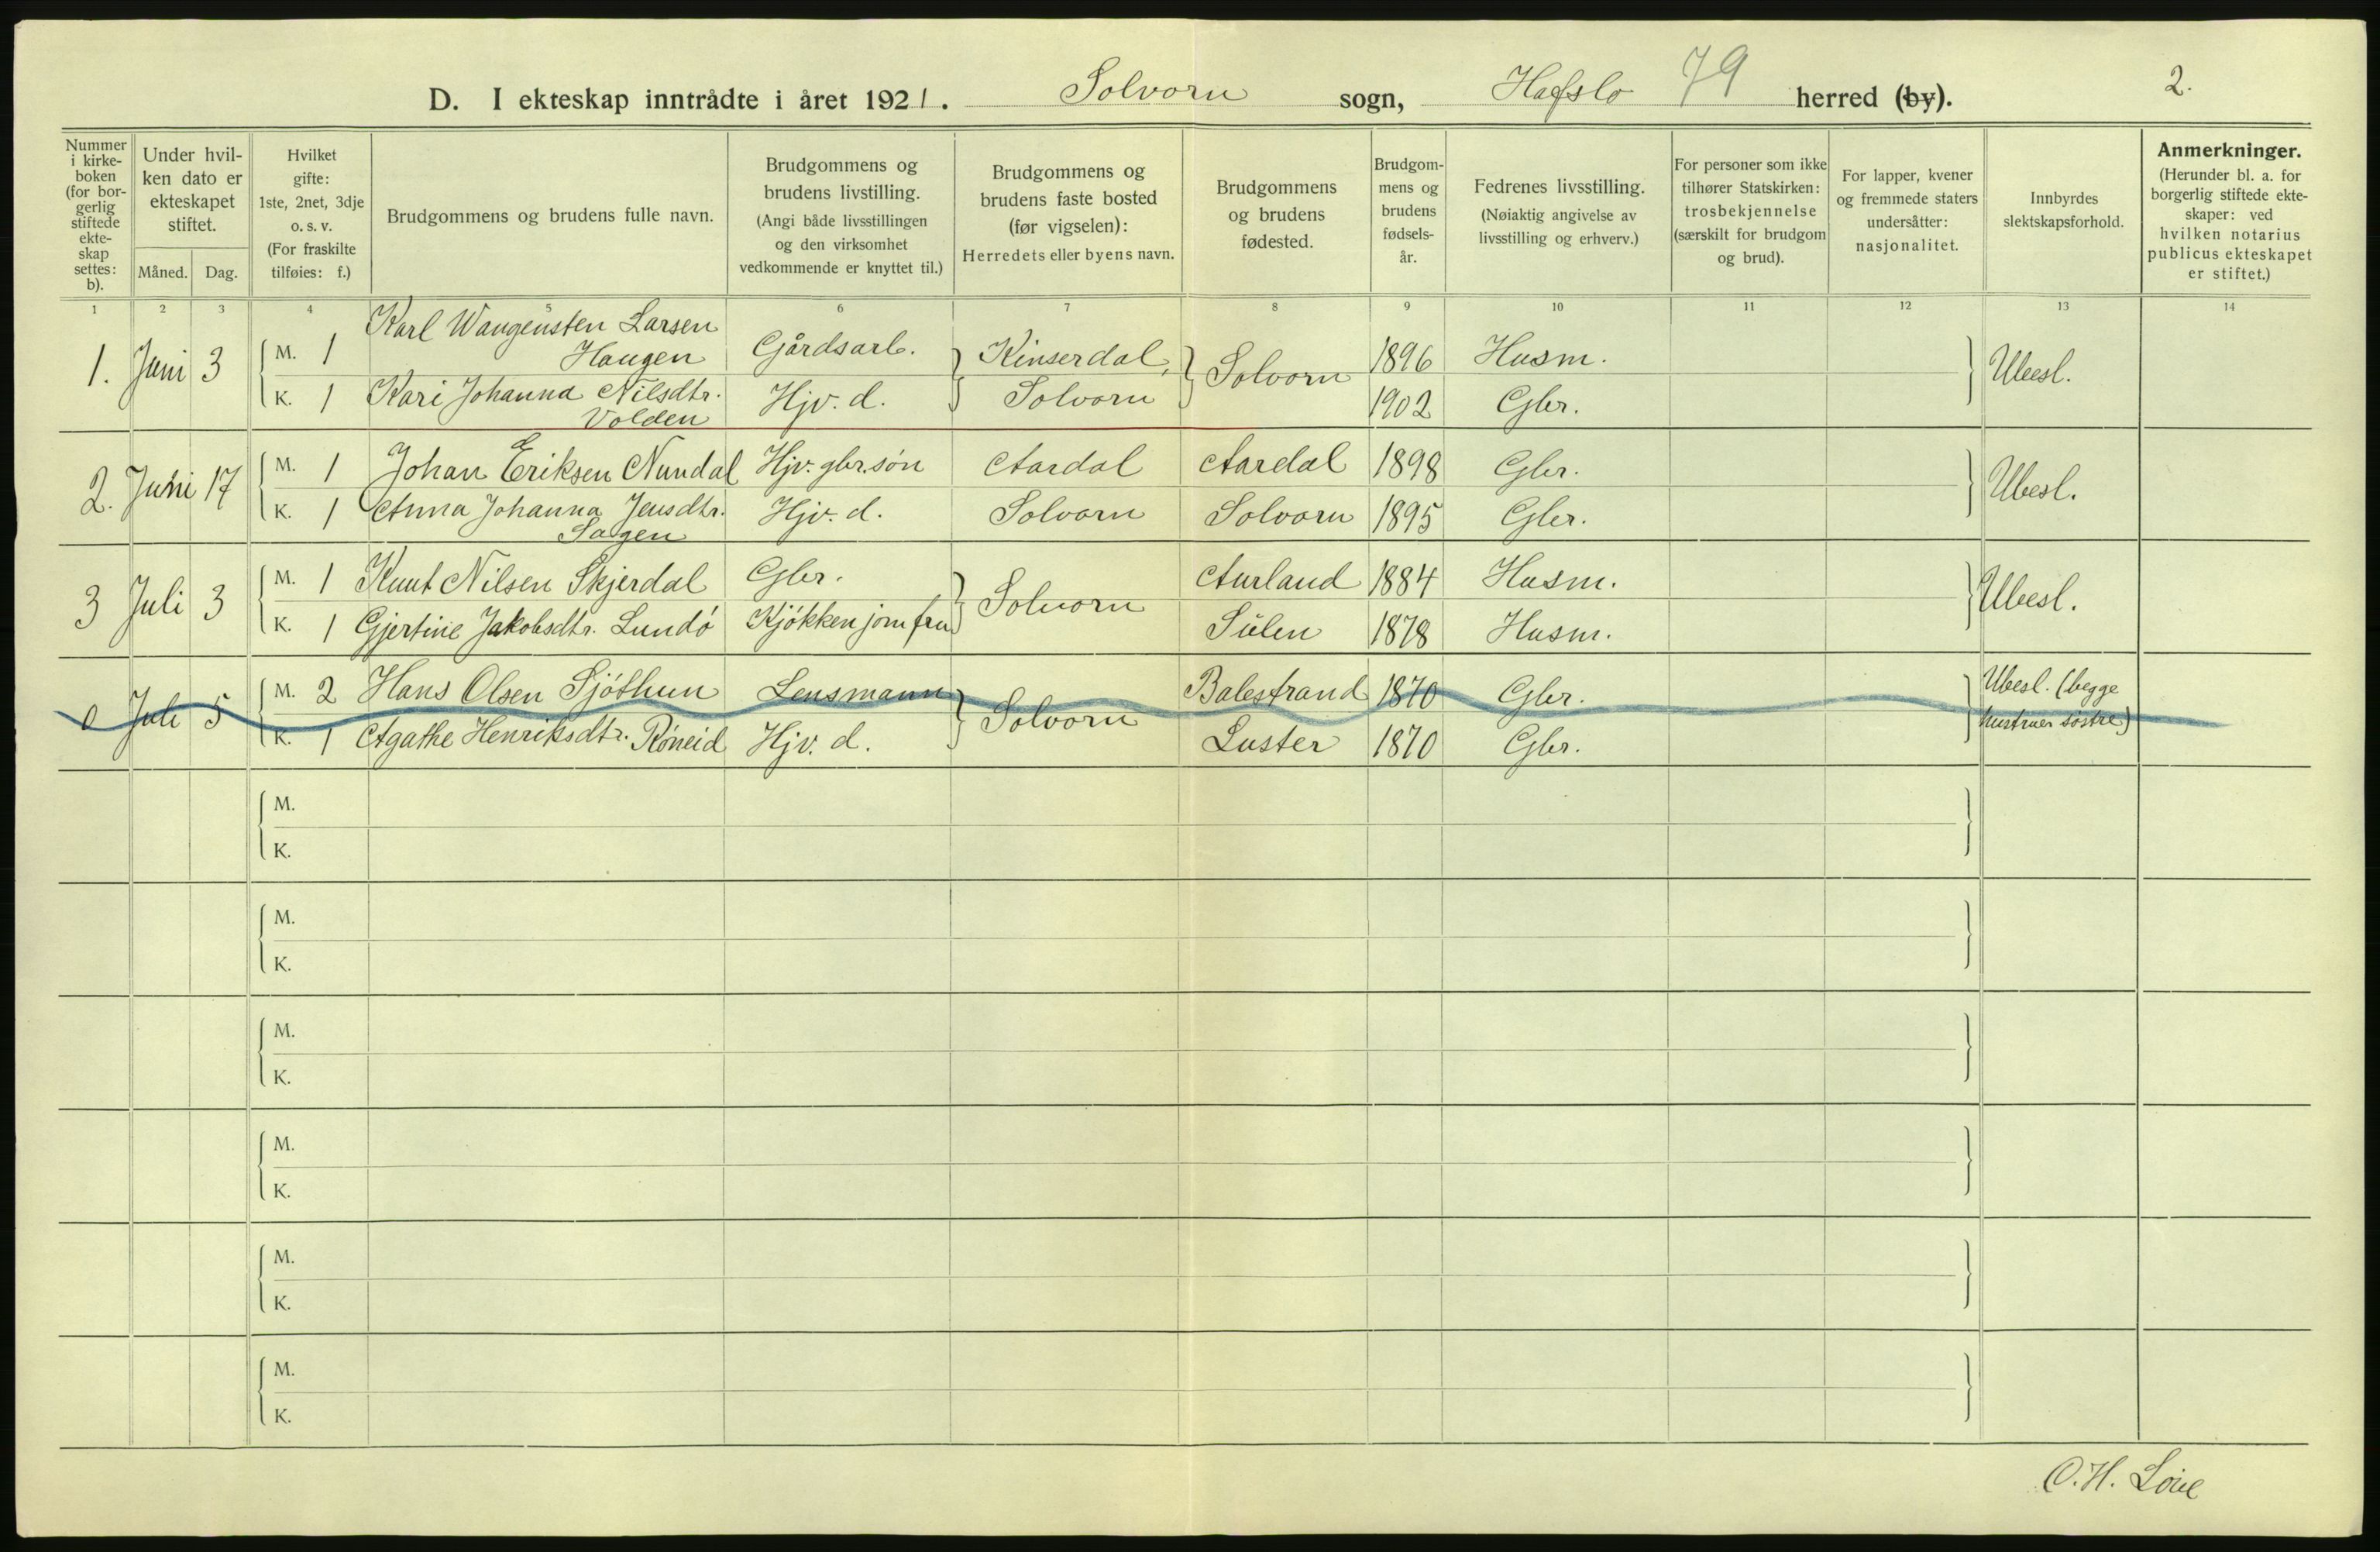 D. I ekteskap inntrådte i året 1921. Solvorn sogn, Hafslo 79 herred (by). 2.
Nummer i kirke- boken (for bor- gerlig stiftede ekte- skap settes: b).
Under hvil- ken dato er ekteskapet stiftet.
Måned. Dag.
Hvilket gifte: 1ste, 2net, 3dje o. s. v. (For fraskilte tilføies: f.)
Brudgommens og brudens fulle navn.
Brudgommens og brudens livstilling. (Angi både livsstillingen og den virksomhet vedkommende er knyttet til.)
Brudgommens og brudens faste bosted (før vigselen): Herredets eller byens navn.
Brudgommens og brudens fødested.
Brudgom- mens og brudens fødsels- år.
Fedrenes livsstilling. (Nøiaktig angivelse av livsstilling og erhverv.)
For personer som ikke tilhører Statskirken: trosbekjennelse (særskilt for brudgom og brud).
For lapper, kvener og fremmede staters undersåtter: nasjonalitet.
Innbyrdes slektskapsforhold.
Anmerkninger. (Herunder bl. a. for borgerlig stiftede ekte- skaper: ved hvilken notarius publicus ekteskapet er stiftet.)
1 2 3 4 5 6 7 8 9 10 11 12 13 14
Karl Waugensten Larsen
1. Juni 3 M. 1 Haugen Gårdsarb. Kinserdal, Solvorn 1896 Husm. Ubesl.
K. 1 Kari Johanna Nilsdtr. Hjv. d. Solvorn 1902 Gbr.
Volden
2. Juni 17 M. 1 Johan Eriksen Nundal Hjv. gbr. søn Aardal Aardal 1898 Gbr. Ubesl.
K. 1 Anna Johanna Jensdtr. Hjv. d. Solvorn Solvorn 1895 Gbr.
Sagen
3 Juli 3 M. 1 Knut Nilsen Skjerdal Gbr. Solvorn Aurland 1884 Husm. Ubesl.
K. 1 Gjertine Jakobsdtr. Lundó Kjókkenjomfru Sulen 1878 Husm.
0 Juli 5 M. 2 Hans Olsen Sjóthun Lensmann Solvorn Balestrand 1870 Gbr. Ubesl. (begge
hustruer søstre)
K. 1 Agathe Henriksdtr. Róneid Hjv. d. Luster 1870 Gbr.
M.
K.
M.
K.
M.
K.
M.
K.
M.
K.
M.
K.
O. H. Lóie